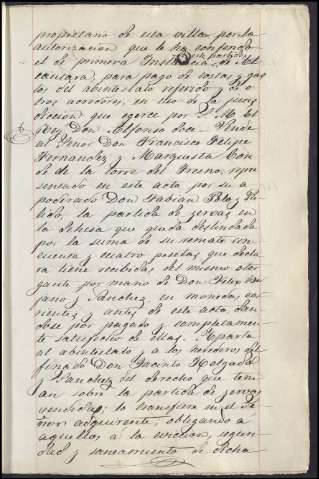 propietario de esta villa, por la
autorización que le ha conferido
el de primera Instancia de Al
cantara, para pago de costas y gas
tos del abintestato referido y de o
tros acreedores, en uso de la juris
dicción que egerce por S. M. El
Rey Don Alfonso doce. Vende
al Señor Don Francisco Felipe
Fernandez y Marquesta Con
de de la Torre del Fresno, repre
sentado en este acto por su a
poderado Don Fabian
lido, la partida de yervas en
la dehesa que queda deslindada
por la suma de su remate cin
cuenta y cuatro pesetas, que decla
ra tiene recibidas, del mismo otor
gante por mano de Don
y Sanchez en monedas co
rrientes y antes de este acto, dan
dose por pagado y completamen
te satisfecho de ellas. Aparta
al abintestato y a los herederos del
finado Don Jacinto Holgado
y Sanchez del derecho que tení
an sobre la partida de yervas
vendidas; la transfiere en el Se
ñor adquirente, obligando a
aquellos a la eviccion, seguri
dad y saneamiento de dicha